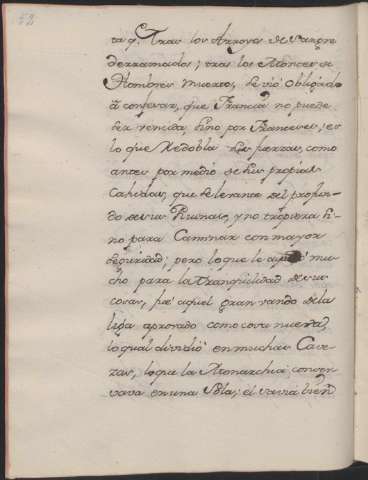 52
ta q. tras los Arroyos de Sangre
derramados, y tras los Montes de
Hombres muertos, se vió obligado
â confesar, que Francia no puede
ser vencida, sino por Franceses; es
lo que Redobla sus fuerzas, como
antes por medio de sus propias
Cahidas, que se levante del profun-
do de sus Ruinas, y no tropieza si-
no para Caminar con mayor
seguridad; pero lo que le mu-
cho para la tranquilidad de sus
cosas, fue aquel gran vando de la
liga aprovado como cosa nuestra,
lo qual dividió en muchas Cave-
zas, lo que la Monarchia conser-
vava en una Sola; el savia bien